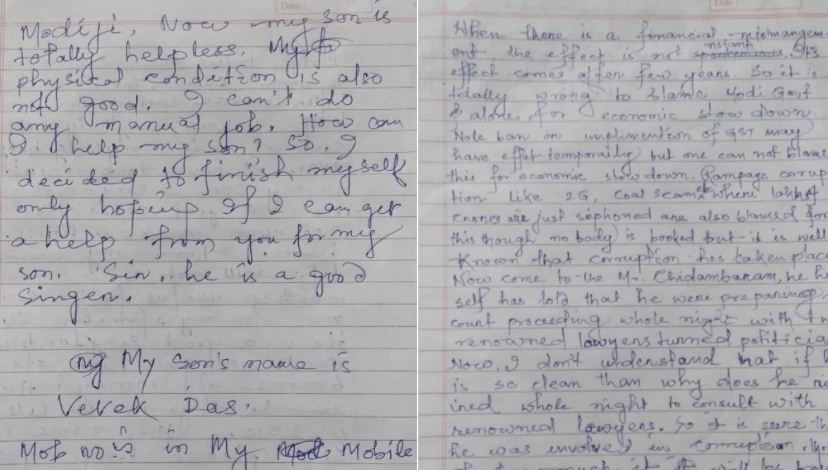 Modiji, Now my son is
totally helpless. My
physical condition is also
not good. I can't do
any manual job. How can
I help my son? So, I
decided to finish myself
only hoping If I can get
a help from you for my
son. Sir, he is a good
Singer.
My Son's name is
Vevek Das.
Mob no is in My Mobile
When there is a financial mismangem-
ent the effect is not instant. Its
effect comes after few years. So it is
totally wrong to blame Modi Govt
alone for economic slow down.
Note ban or implimention of GST may
have effet temporaily but one can not blame
this for economic slow down. Rampage corrup
tion like 2G, Coal scam where lakhs of
crores are just siphoned are also blamed for
this though no body is booked but it is well
Known that corruption has taken place
Now come to the Mr. Chidambaram, he h
self has told that he were preparing
court proceeding whole night with
renowned lawyers turned politicia
Now, I don't understand that if h
is so clean than why does he
ined whole night to consult with
renowned lawyers. So it is sure th
he was involved in corruption.